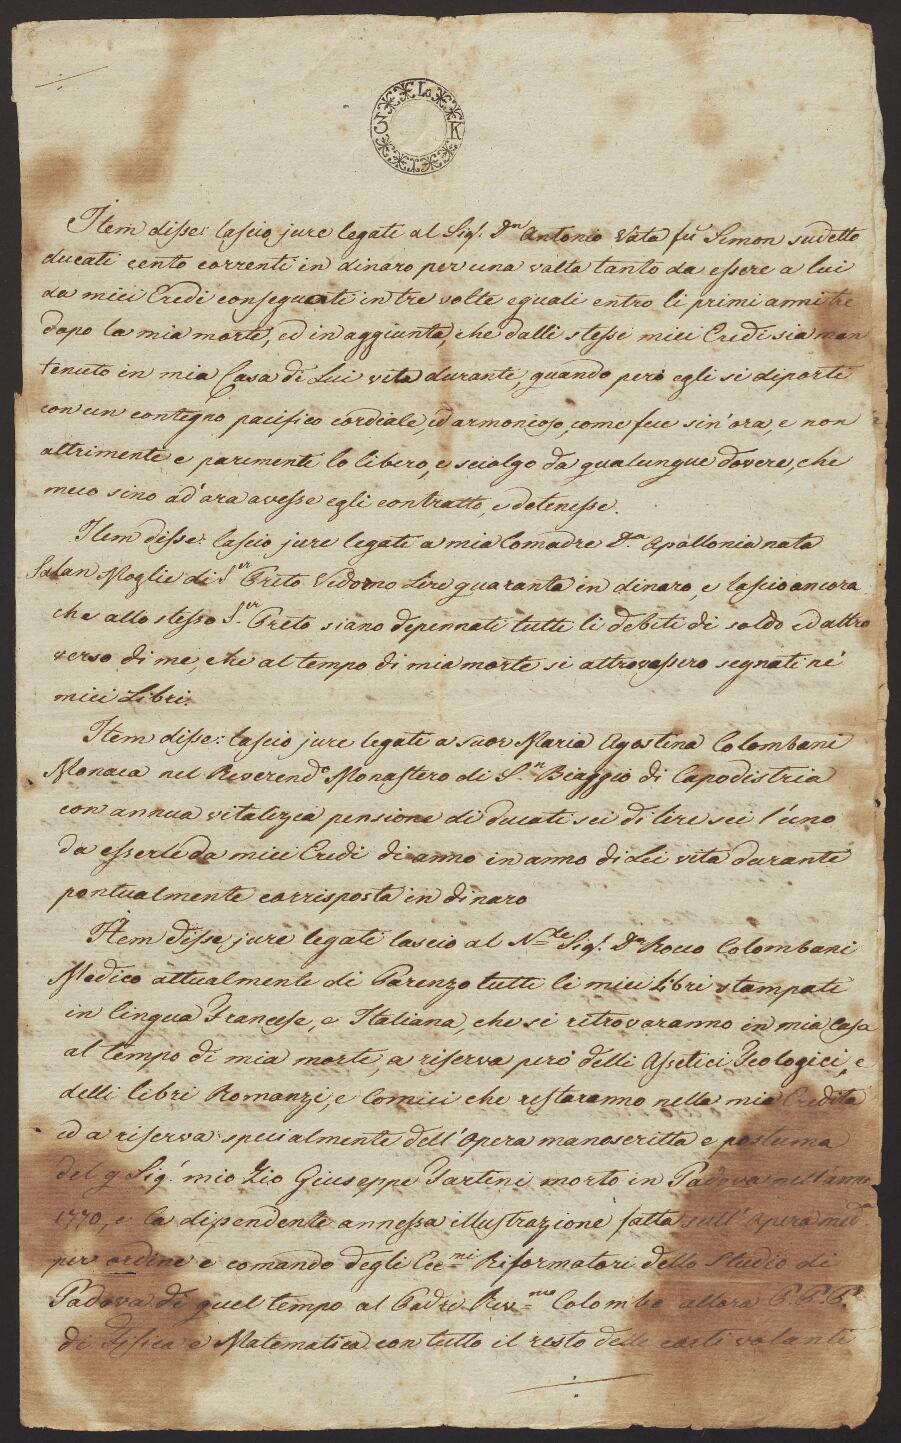 3 Lo K I
Item disse: lascio jure legati al Sigr. Dn Antonio Vata fu Simon sudetto
ducati cento correnti in dinaro per una valta tanto da essere a lui
da miei Eredi conseguati in tre volte eguali entro li primi anni tre
dopo la mia morte, ed in aggiunta, che dalli stessi miei Eredi sia man
tenuto in mia Casa di Lui vita durante, quando però egli si diporti
con un contegno pacifico cordiale, ed armonioso, come fece sin' ora, e non
altrimenti e parimenti lo libero, e sciolgo da qualunque dovere, che
meco sino ad' ora avesse egli contratto, e dotenesse.
Item disse: lascio jure legati a mia Comadre D.a Apollonia nata
Moglie di Ser Preto Vidorno Lire quaranta in dinaro, e lascio ancora
che allo stesso Ser Preto siano depennati tutti li debiti di soldo ed altro
verso di me, che al tempo di mia morte si attrovassero segnati nè
miei Libri.
Item disse: lascio jure legati a suor Maria Agostina Colombani
Monaca nel Reverendo Monastero di Sn Biaggio di Capodistria
con annua vitalizia pensione di ducati sei di lire sei l'uno
da esserle da miei Eredi di anno in anno di Lei vita durante
pontualmente corrisposta in dinaro
Item disse jure legati lascio al Nble Sigr. Dn Rocco Colombani
Medico attualmente di Parenzo tutti li miei Libri stampati
in lingua Francese, e Italiana, che si ritrovaranno in mia Casa
al tempo di mia morte, a riserva però delli Assetici Teologici, e
delli libri Romanzi, e Comici che restaranno nella mia Eredità
ed a riserva specialmente dell' Opera manoscritta e postuma
del q Sigr mio Zio Giuseppe Tartini morto in Padova nell' anno
1770, e la dipendente annessa illustrazione fatta sull' Opera medma
per ordine e comando degli Eccmi Riformatori dello Studio di
Padova di quel tempo al Padre Revmo Colombo allora P. P. P.
di Fisica e Matematica con tutto il resto delle carti volanti